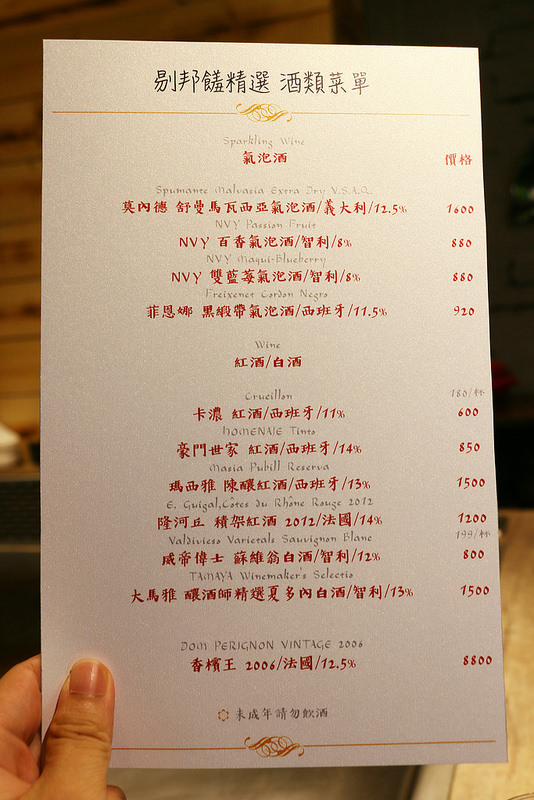 剔邦饈精選 酒類菜單
Sparkling Wine
氣泡酒 價格
Spumante Malvasia Extra Dry V.S.A.Q.
莫內德 舒曼馬瓦西亞氣泡酒/義大利/12.5% 1600
NVY Passion Fruit
NVY 百香氣泡酒/智利/8% 880
NVY Maqui-Blueberry
NVY 雙藍莓氣泡酒/智利/8% 880
Freixenet Cordon Negro
菲恩娜 黑緞帶氣泡酒/西班牙/11.5% 920
Wine
紅酒/白酒
Crucillon 180/杯
卡濃 紅酒/西班牙/11% 600
HOMENAJE Tinto
豪門世家 紅酒/西班牙/14% 850
Masia Pubill Reserva
瑪西雅 陳釀紅酒/西班牙/13% 1500
E. Guigal,Côtes du Rhône Rouge 2012
隆河丘 積架紅酒 2012/法國/14% 1200
Valdivieso Varietals Sauvignon Blanc 199/杯
威帝偉士 蘇維翁白酒/智利/12% 800
TAMAYA Winemaker's Selectio
大馬雅 釀酒師精選夏多內白酒/智利/13% 1500
DOM PERIGNON VINTAGE 2006
香檳王 2006/法國/12.5% 8800
未成年請勿飲酒